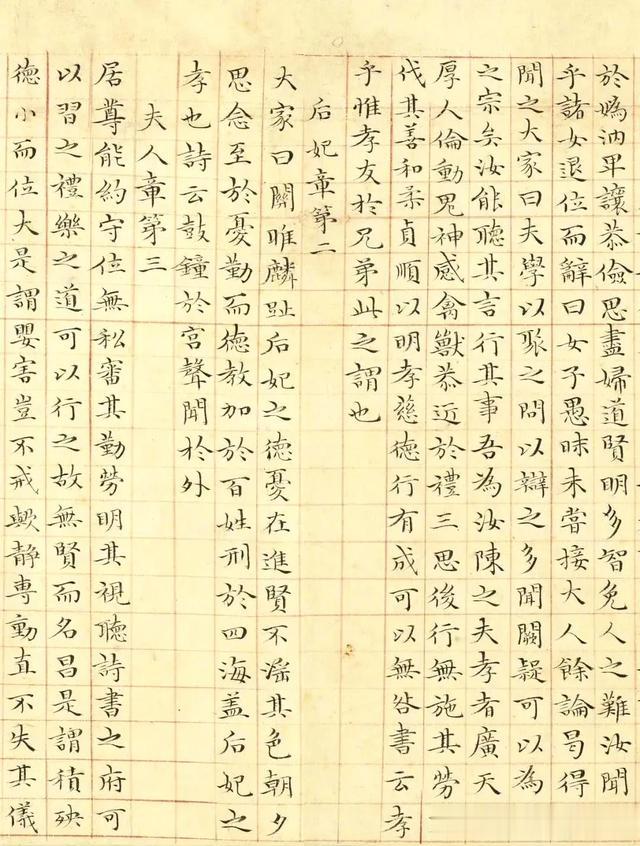 於嬀汭卑讓恭儉思盡婦道賢明多智免人之難汝聞
乎諸女退位而辭曰女子愚昧未嘗接大人餘論曷得
聞之大家曰夫學以聚之問以辯之多聞闕疑可以為
之宗矣汝能聽其言行其事吾為汝陳之夫孝者廣天
厚人倫動鬼神感禽獸恭近於禮三思後行無施其勞
伐其善和柔貞順以明孝慈德行有成可以無咎書云孝
乎惟孝友於兄弟此之謂也
后妃章第二
大家曰關雎麟趾后妃之德憂在進賢不淫其色朝夕
思念至於憂勤而德教加於百姓刑於四海盖后妃之
孝也詩云鼓鐘於宮聲聞於外
夫人章第三
居尊能約守位無私審其勤勞明其視聽詩書之府可
以習之禮樂之道可以行之故無賢而名昌是謂積殃
德小而位大是謂嬰害豈不戒歟静專動直不失其儀